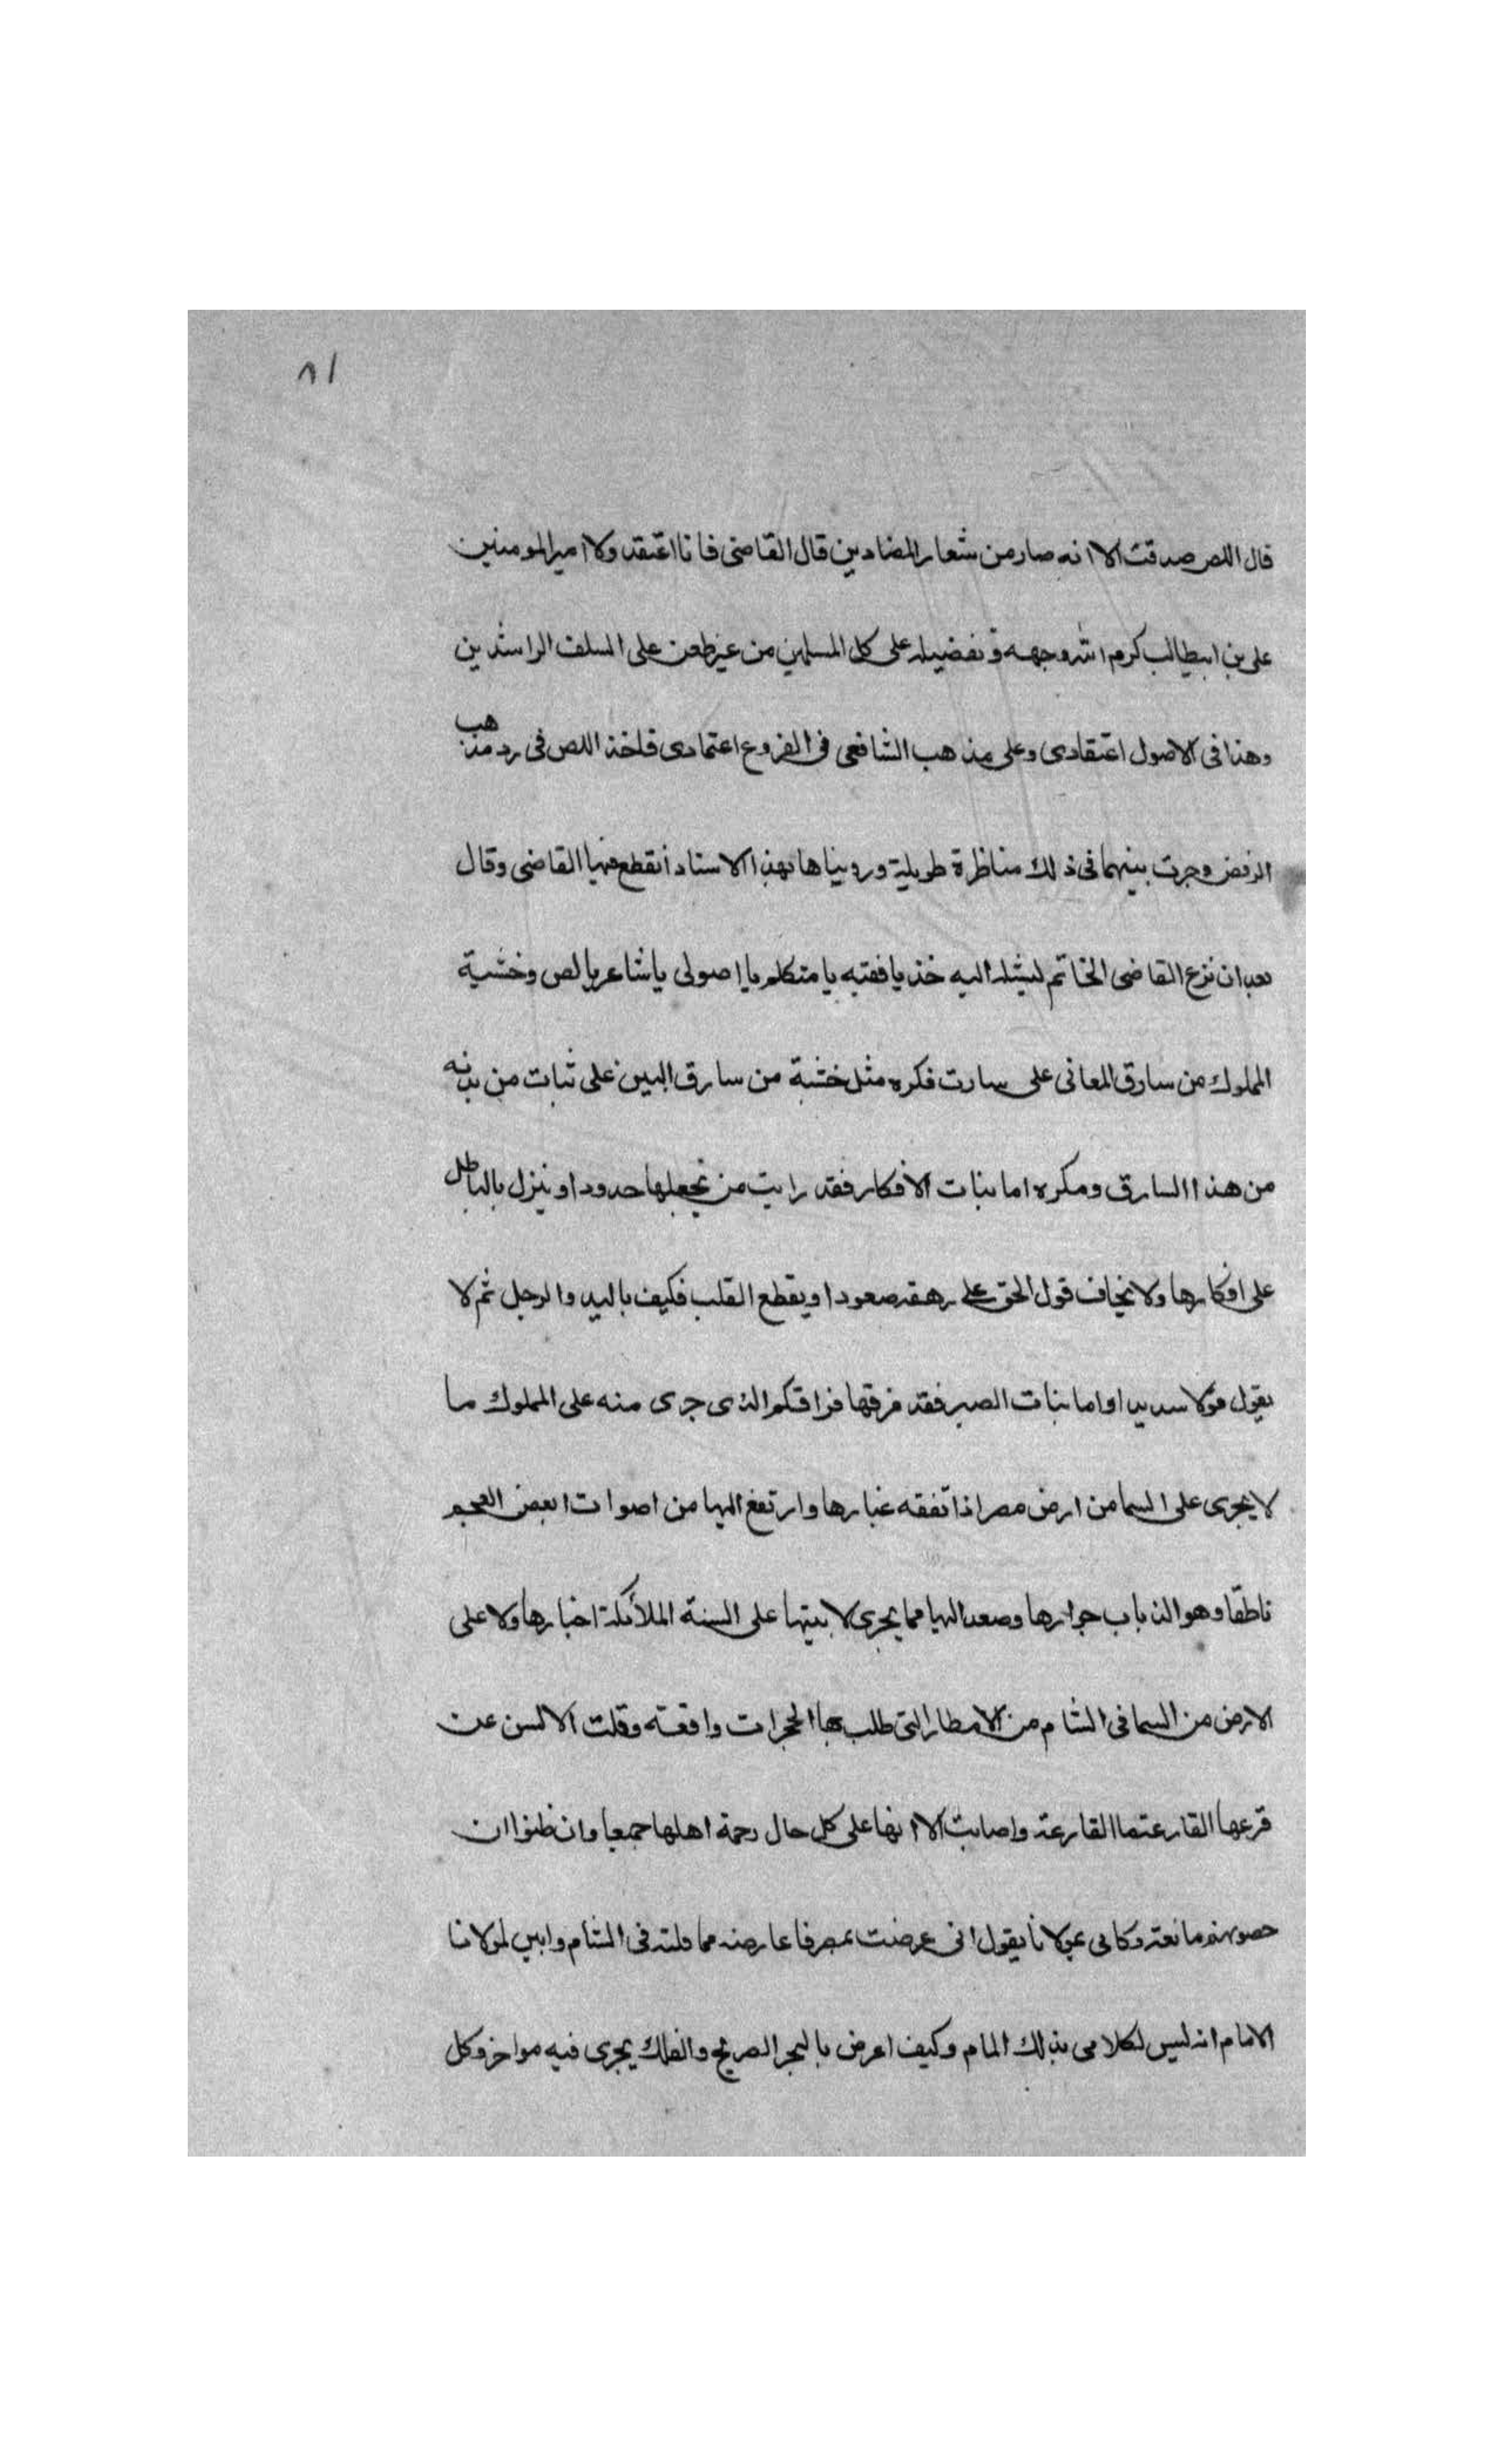 ٨١
قال اللص صدقت الا انه صار من شعار المضادين قال القاضى فانا اعتقد ولا امير المومنين
على بن ابيطالب كرم الله وجهه وتفضيله على كل المسلمين من غير طعن على السلف الراشدين
وهذا فى الاصول اعتقادى وعلى مذهب الشافعى فى الفروع اعتمادى فاخذ اللص فى رد مذهب
الرفض وجرت بينهما فى ذلك مناظرة طويلة ورويناها بهذا الاسناد انقطع فيها القاضى وقال
بعد ان نزع القاضى الخاتم ليشله اليه خذ يا فقيه يا متكلم يا اصولى يا شاعر يا لص وخشية
المملوك من سارق المعانى على سارت فكره مثل خشية من سارق البين على ثبات من بدنه
من هذا السارق ومكره اما بنات الافكار فقد رايت من يجعلها حدودا وينزل بالباطل
على افكارها ولا يخاف قول الحق على رهقه صعودا ويقطع القلب فكيف باليد والرجل ثم لا
يقول قولا سديدا واما بنات الصبر فقد فرقها فراقكم الذى جرى منه على المملوك ما
لا يجرى على السما من ارض مصر اذا تفقه غبارها وارتفع اليها من اصوات ابعض العجم
ناطقا وهو الذباب جوارها وصعد اليها مما يجرى لا بيتها على السنة الملائكة اخبارها ولا على
الارض من السما فى الشام من الامطار التى طلب بها الحجرات واقعة وقلت الالسن عن
قرعها القارعة ما القارعة واصابت الا انها على كل حال رحمة اهلها جميعا وان ظنوا ان
حصونهم مانعته وكانى بمولانا يقول انى عرضت بمصر فاعارضه مما قلته فى الشام وابين لمولانا
الامام انه ليس لكلامى بذلك المام وكيف اعرض بالبحر الصريح والفلك يجرى فيه مواخر وكل